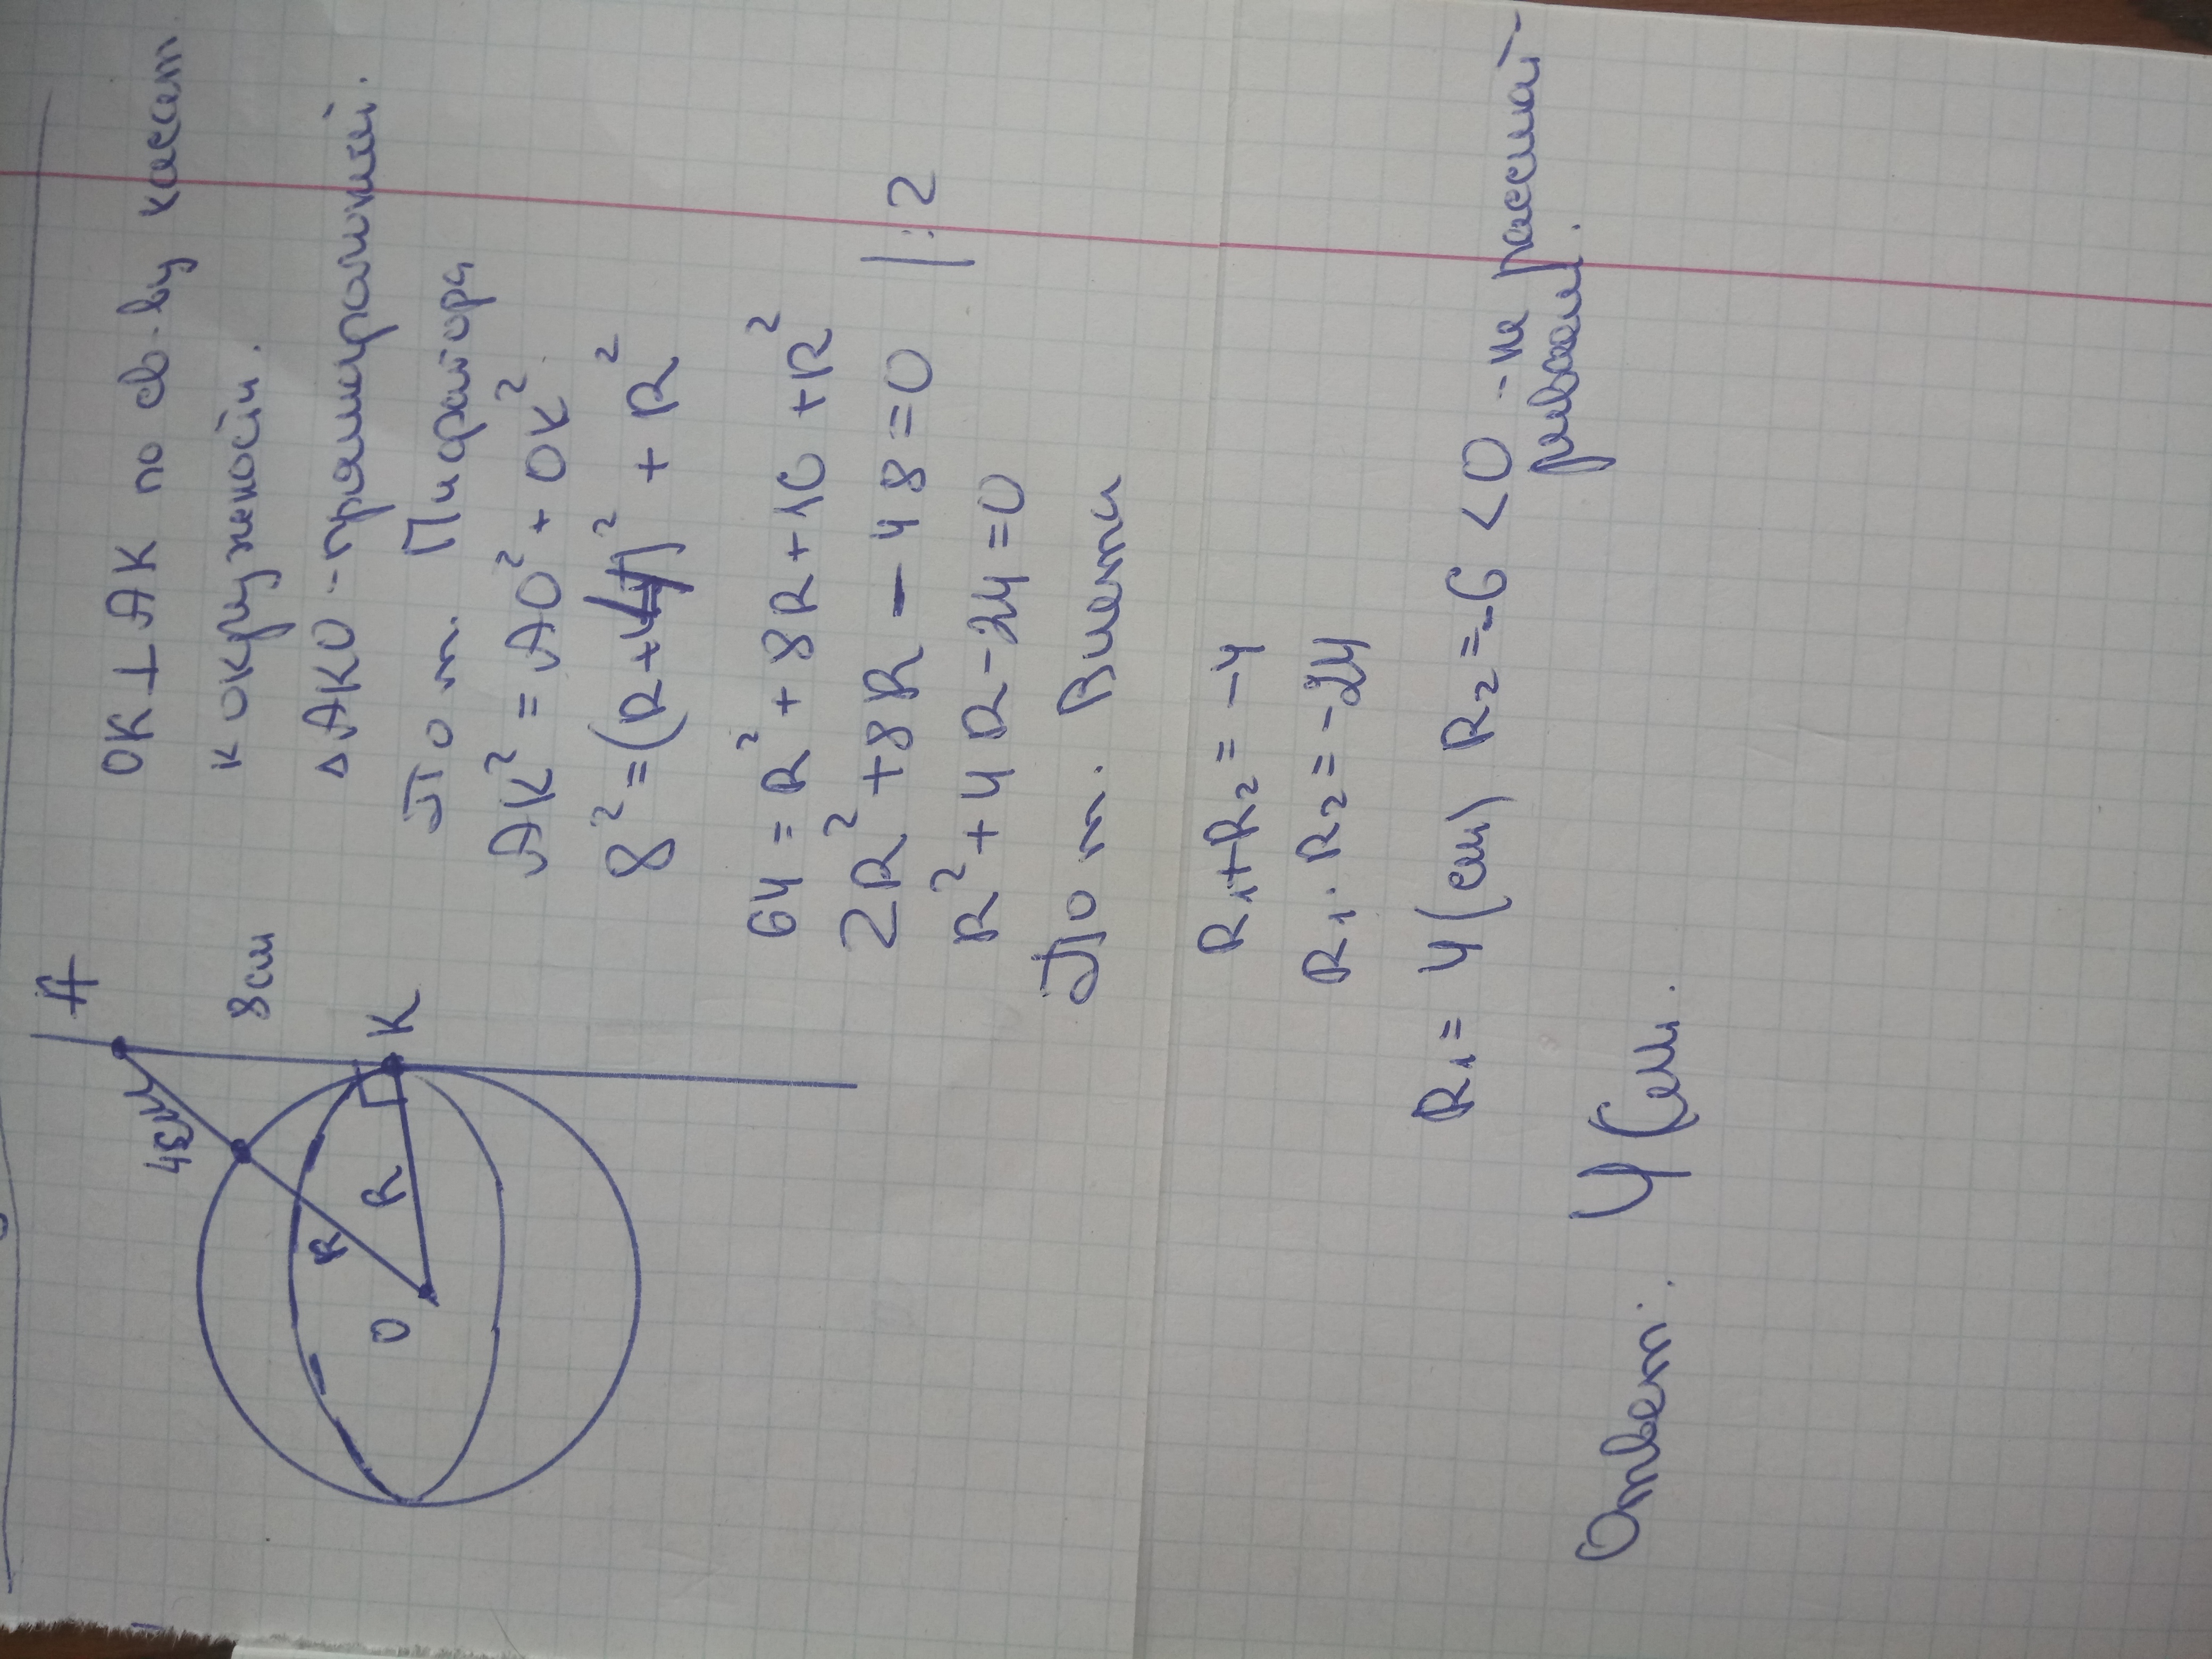 A
8см
4см
K
R
R
O
OK ⊥ AK по св-ву касат.
к окружности.
△AKO - прямоугольный.
По т. Пифагора
AK² = AO² + OK²
8² = (R+4)² + R²
64 = R² + 8R + 16 + R²
2R² + 8R - 48 = 0 | : 2
R² + 4R - 24 = 0
По т. Виета
R₁ + R₂ = -4
R₁ · R₂ = -24
R₁ = 4 (см) R₂ = -6 < 0 - не рассмат-
риваем.
Ответ: 4 (см.